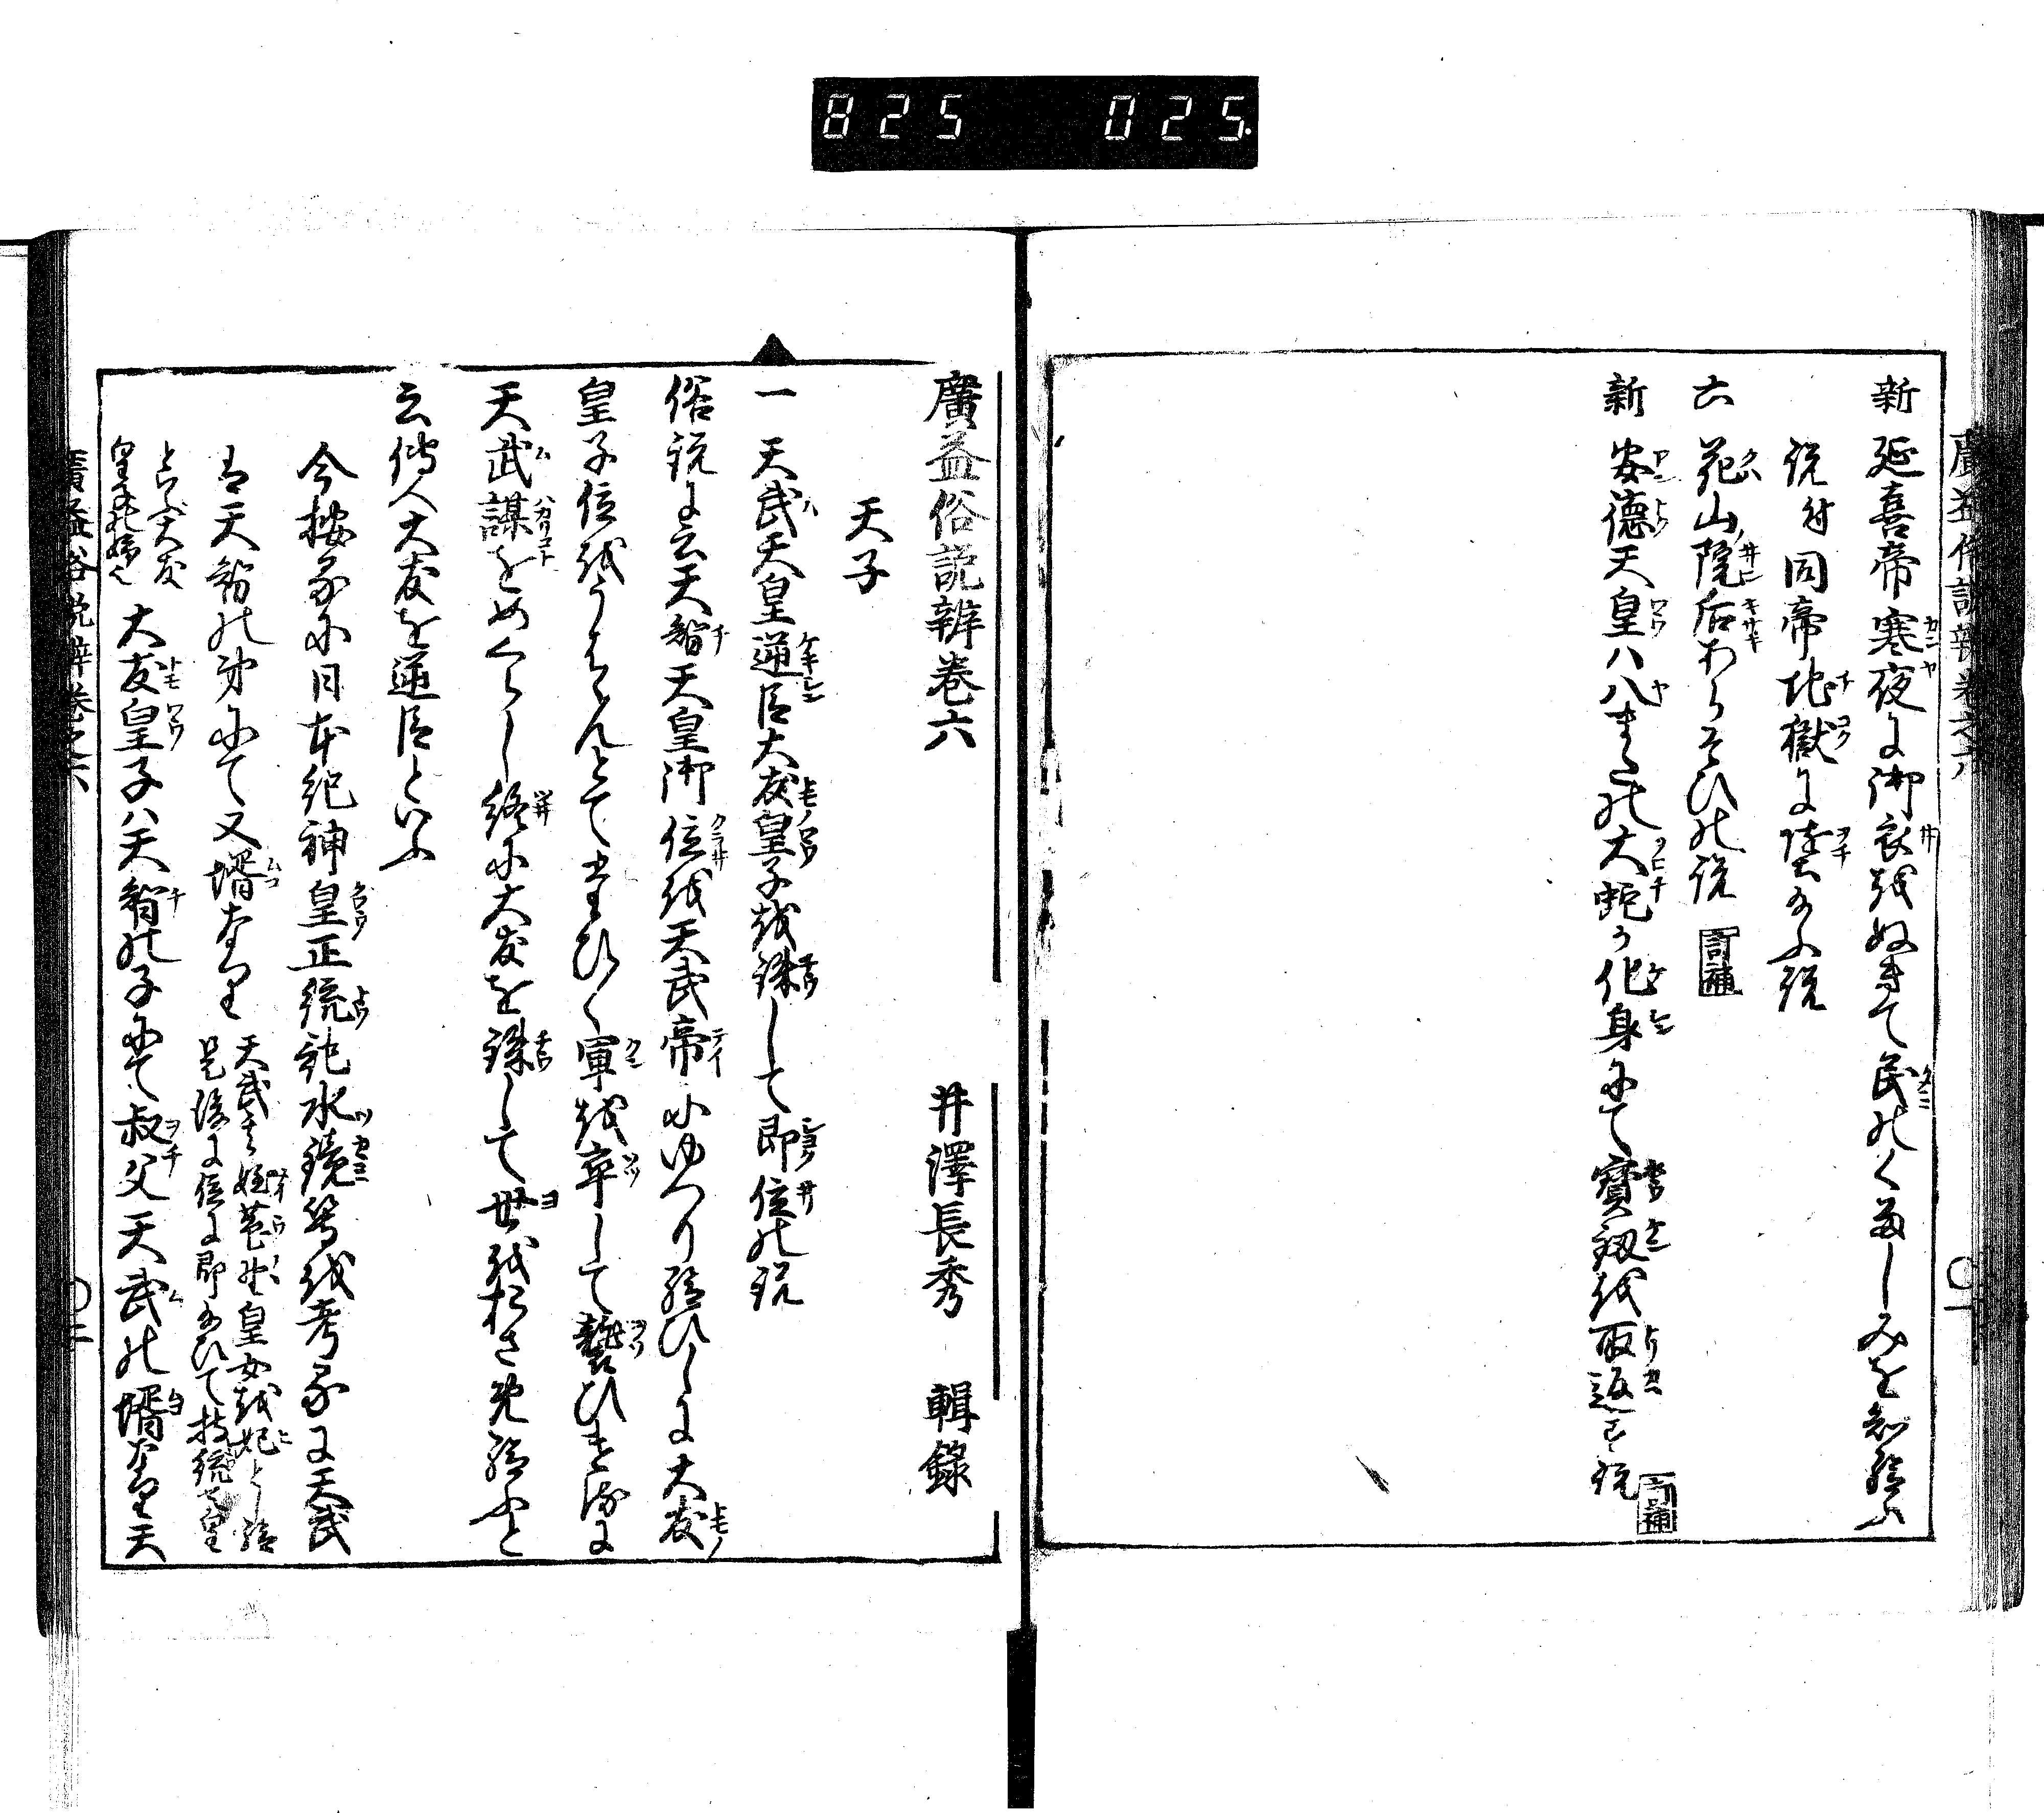 825 025.
廣益俗説辨卷之六
新 延喜帝寒夜に御衣をぬきて民のくるしみを知給ふ
説付同帝地獄に墮玉ふ説
六 花山院后あらそひの説 訂補
新 安德天皇ハ八またの大蛇か化身にて寶劔を取返す説 訂補
廣益俗説辨卷六
井澤長秀 輯錄
天子
一 天武天皇逆臣大友皇子を誅して即位の説
俗説に云天智天皇御位を天武帝にゆつり給ひしに大友
皇子位をうははんとてたひ〱軍を率して襲ひける後に
天武謀をめくらし終に大友を誅して世をおさめ給ふと
云傳へ大友を逆臣といふ
今按るに日本紀神皇正統記水鏡等を考るに天武
は天智の弟にて又壻なり
天武は姪菟野皇女を妃とし給
是後に位に即玉ひて持統天皇
と云ふ大友
皇子の姉也
大友皇子ハ天智の子にて叔父天武の壻なり天
廣益俗説辨卷之六